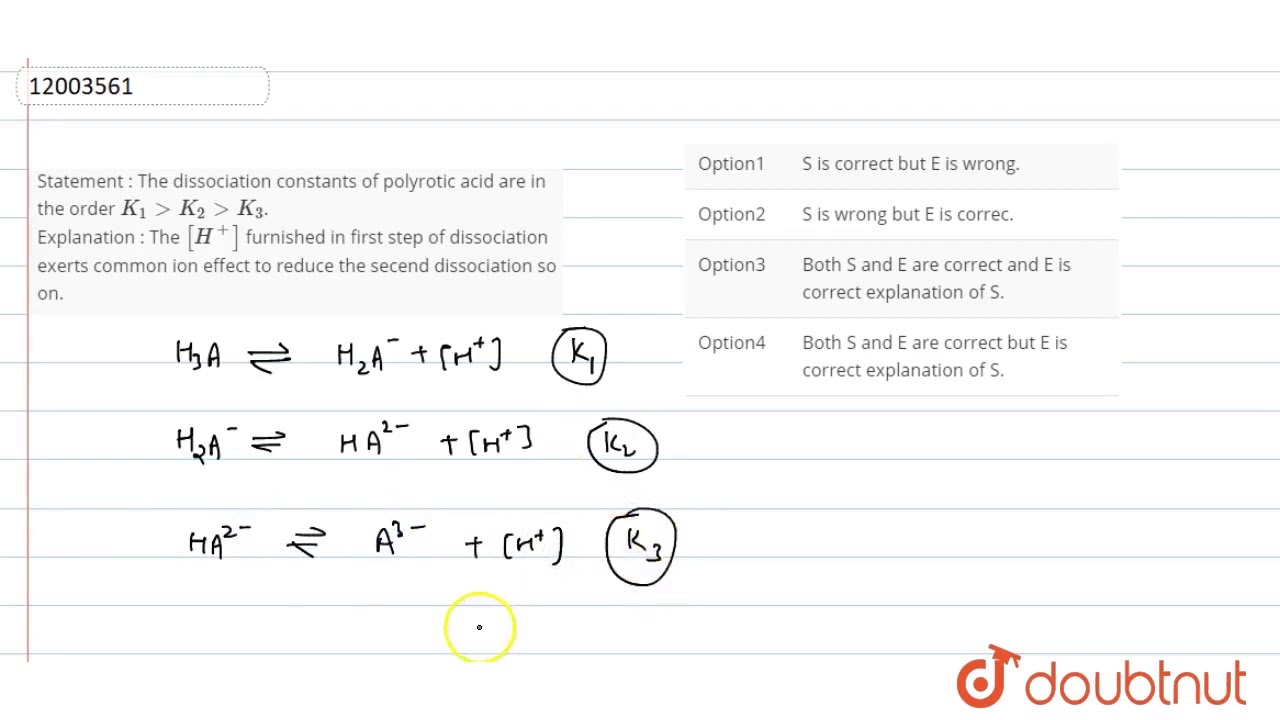 12003561
Statement : The dissociation constants of polyrotic acid are in
the order K₁ > K₂ > K₃.
Explanation : The [H⁺] furnished in first step of dissociation
exerts common ion effect to reduce the secend dissociation so
on.
Option1 S is correct but E is wrong.
Option2 S is wrong but E is correc.
Option3 Both S and E are correct and E is
correct explanation of S.
Option4 Both S and E are correct but E is
correct explanation of S.
H₃A ⇌ H₂A⁻ + [H⁺] K₁
H₂A⁻ ⇌ HA²⁻ + [H⁺] K₂
HA²⁻ ⇌ A³⁻ + [H⁺] K₃
doubtnut